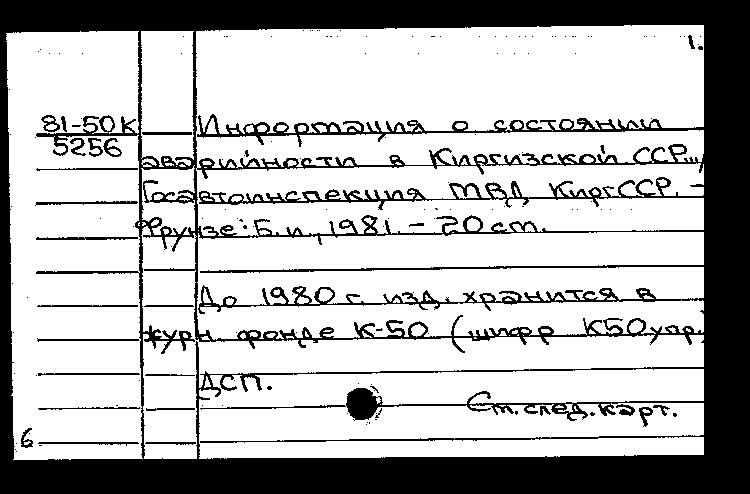 1.
81-50К Информация о состоянии
5256
аварийности в Киргизской ССР...,
Госавтоинспекция МВД КиргССР. –
Фрунзе: Б. и., 1981. – 20 ст.
До 1980 г. изд. хранится в
журн. фонде К-50 (шифр К50упр.)
ДСП.
См. след. карт.
6